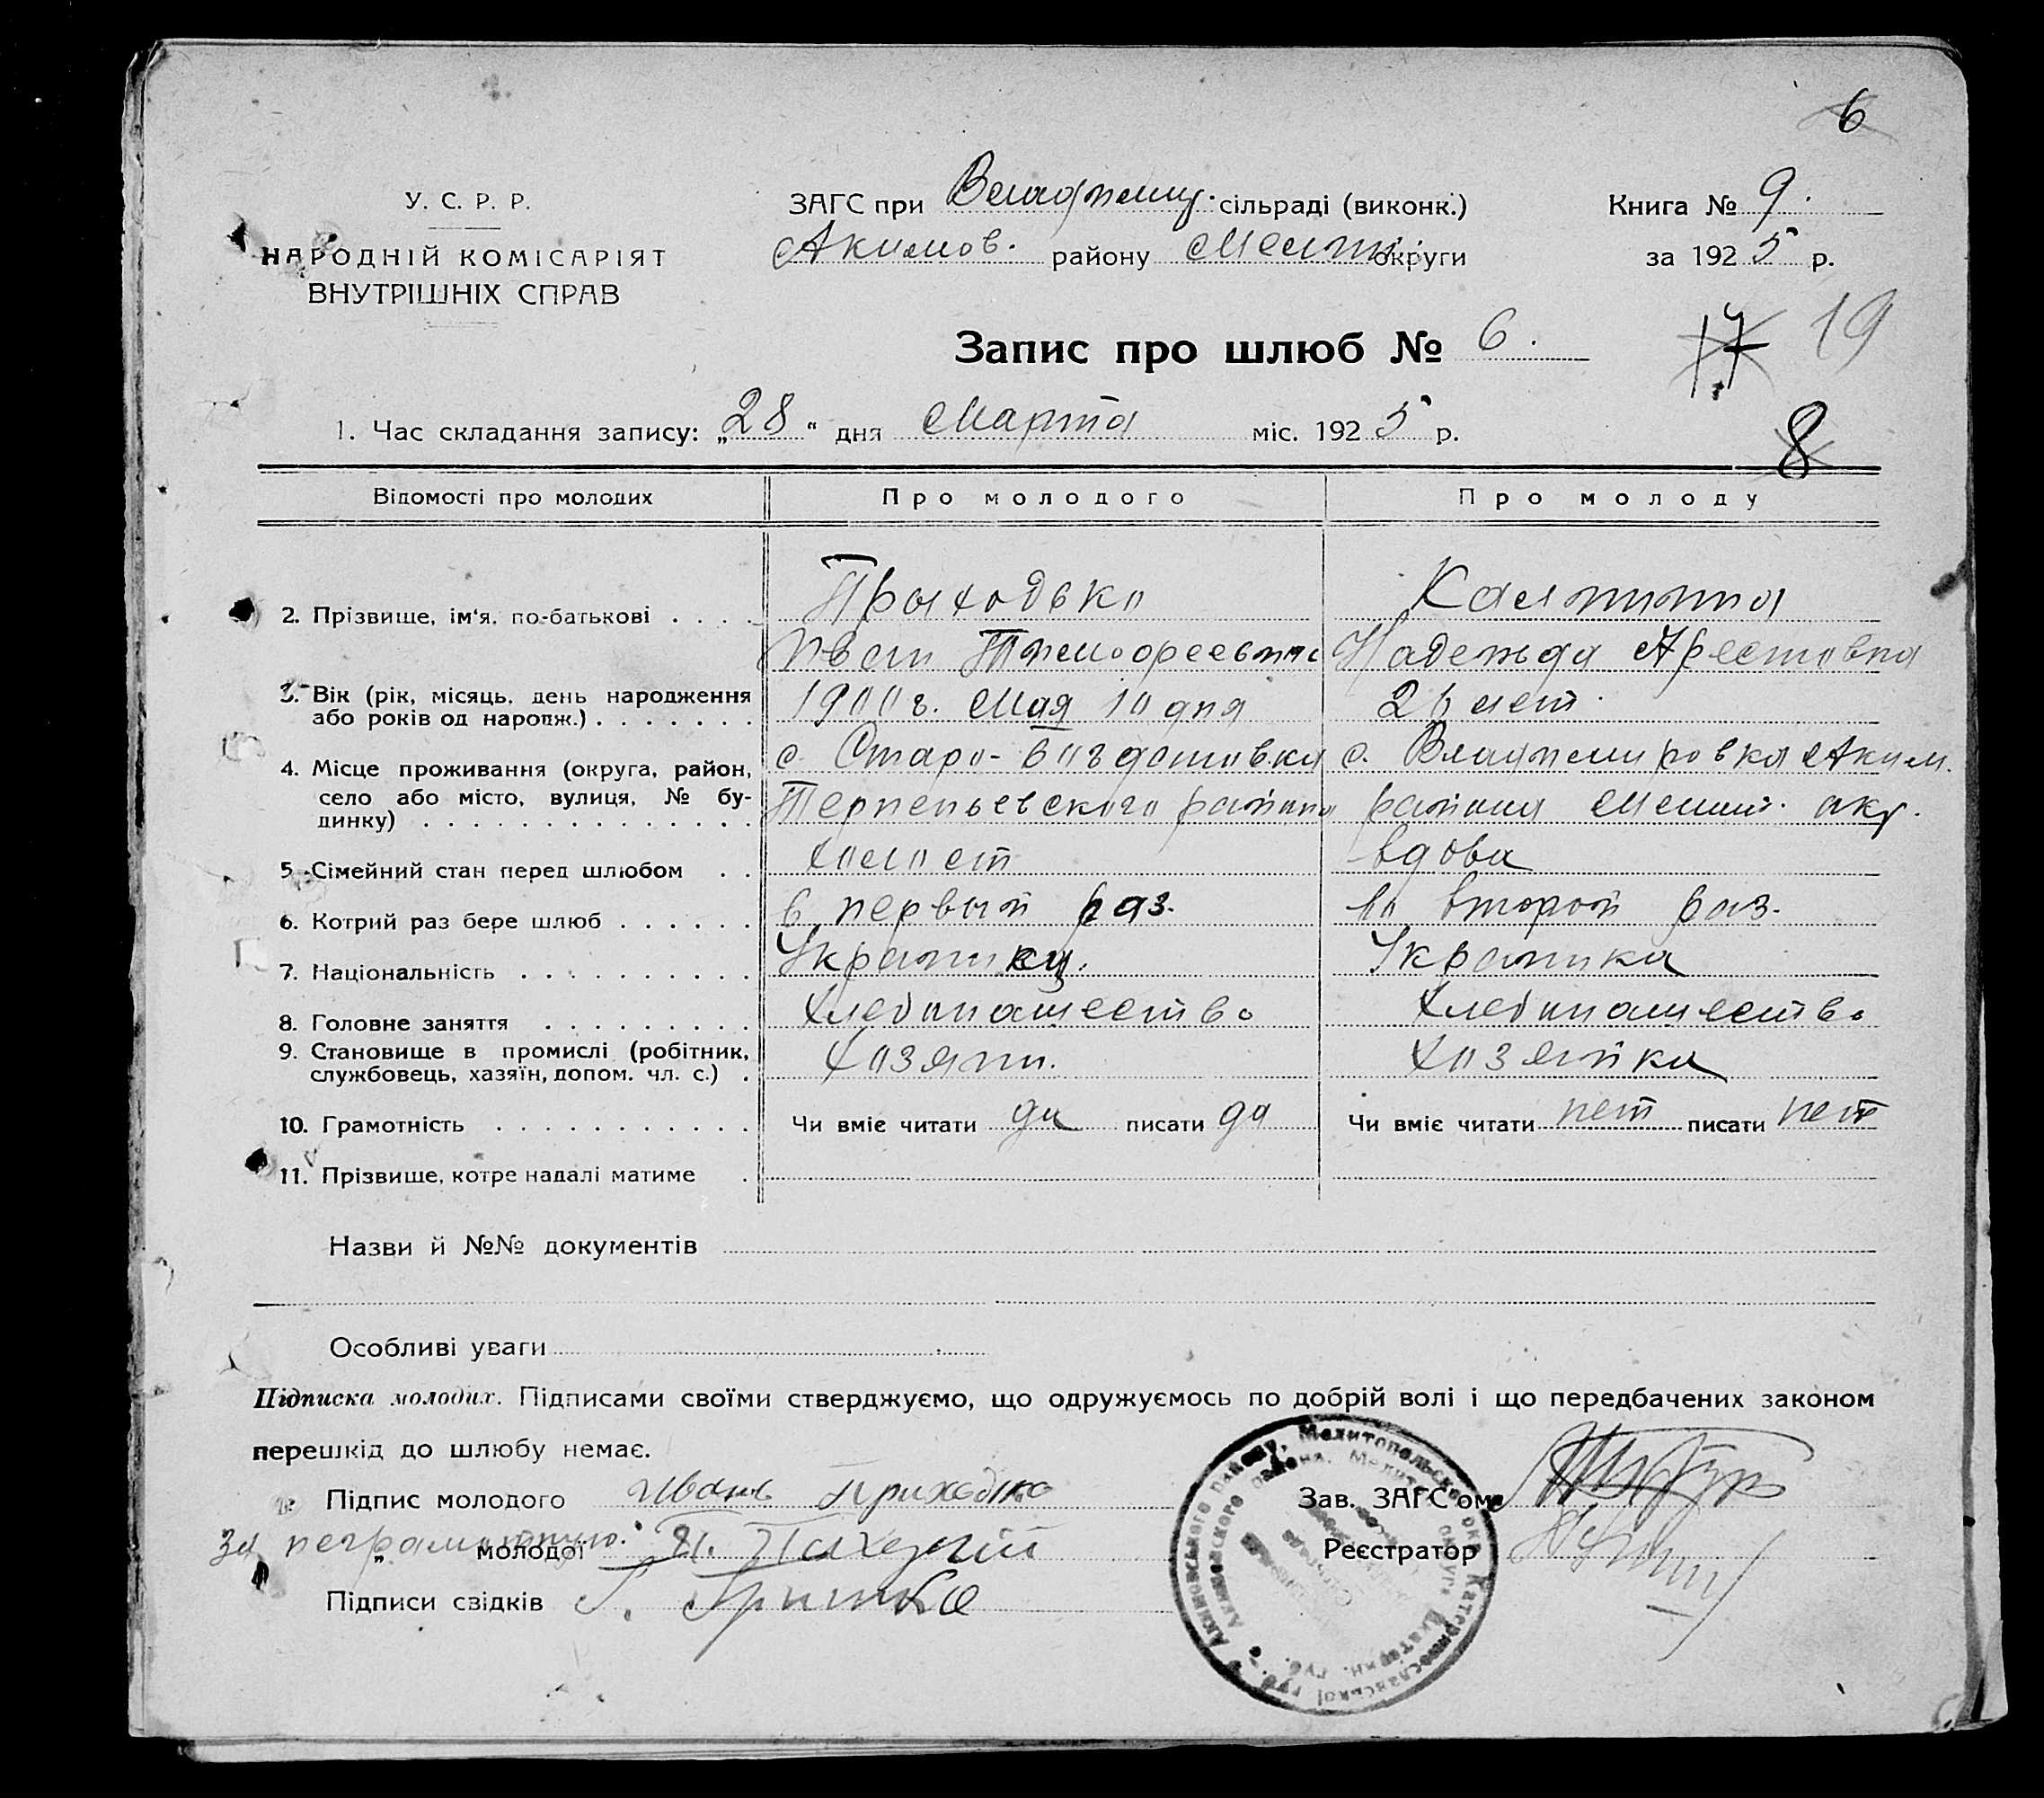 6
У. С. Р. Р.
НАРОДНІЙ КОМІСАРІЯТ
ВНУТРІШНІХ СПРАВ
ЗАГС при Владимир. сільраді (виконк.)
Акимов. району Мелит. округи
Книга № 9.
за 1925 р.
Запис про шлюб № 6.
17 19
8
1. Час складання запису: „28“ дня Марта міс. 1925 р.
Відомості про молодих Про молодого Про молоду
2. Прізвище, ім'я, по-батькові . . . . Приходько Калинина
Иван Тимофеевич Надежда Арестовна
3. Вік (рік, місяць, день народження або років од народж.) . . . . . . . 1900 г. Мая 10 дня лет.
4. Місце проживання (округа, район, село або місто, вулиця, № будинку) . . . . . . . . . . . . . .
с. Старо-Богдановка с. Владимировка Аким.
Терпеньевского района района Мелит. окр.
5. Сімейний стан перед шлюбом . . холост вдова
6. Котрий раз бере шлюб . . . . . . в первый раз. во второй раз.
7. Національність . . . . . . . . . . Украинец. Украинка
8. Головне заняття . . . . . . . . . Хлебопашество Хлебопашество
9. Становище в промислі (робітник, службовець, хазяїн, допом. чл. с.) . Хозяин. Хозяйка
10. Грамотність . . . . . . . . . . . Чи вміє читати да писати да Чи вміє читати нет писати нет
11. Прізвище, котре надалі матиме .
Назви й №№ документів
Особливі уваги
Підписка молодих. Підписами своїми стверджуємо, що одружуємось по добрій волі і що передбачених законом
перешкід до шлюбу немає.
Підпис молодого Иван Приходко
Зав. ЗАГС'ом
За неграмотную. „ молодої
Реєстратор
Підписи свідків